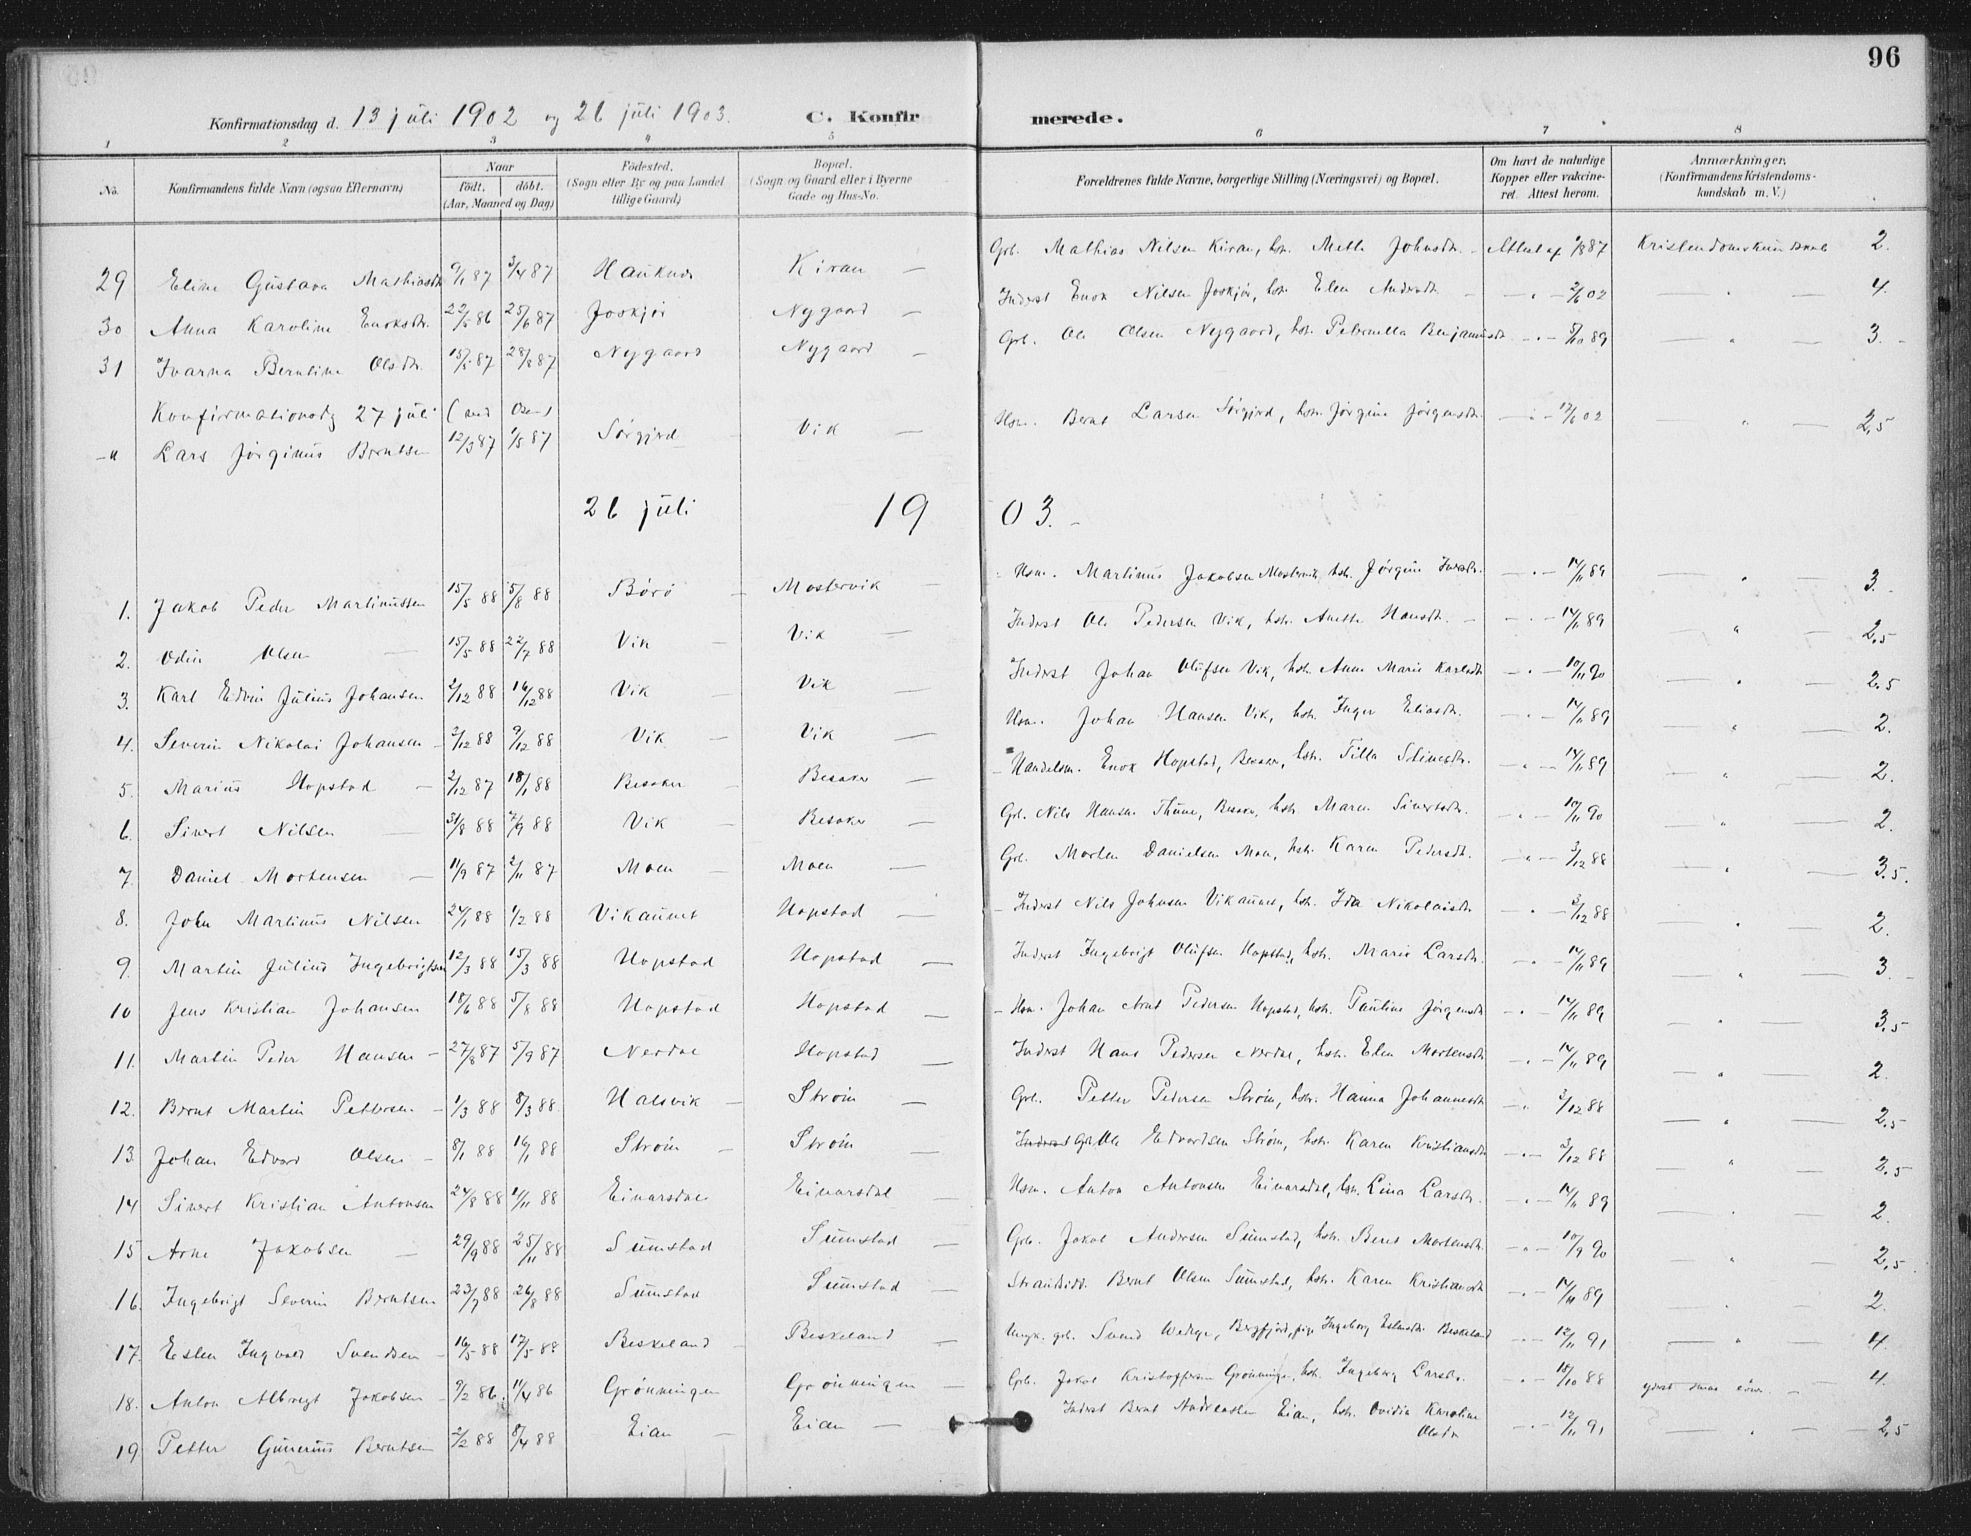 96
Konfirmationsdag d. 13 juli 1902 og 26 juli 1903. C. Konfirmerede.
1 2 3 4 5 6 7 8
No. Konfirmandens fulde Navn (ogsaa Efternavn) Naar født. døbt. (Aar, Maaned og Dag) Fødested. (Sogn eller By og paa Landet tillige Gaard) Bopæl. (Sogn og Gaard eller i Byerne Gade og Hus-No. Forældrenes fulde Navne, borgerlige Stilling (Næringsvei) og Bopæl. Om havt de naturlige Kopper eller vakcineret. Attest herom. Anmærkninger. (Konfirmandens Kristendomskundskab m. V.)
29 Eline Gustava Mathiasdtr 9/1 87 3/4 87 Hauknes Kiran — Grb. Mathias Nilsen Kiran, hstr. Mette Johnsdtr. - Attest af 1/8 87 Kristendomskundskab 2.
30 Anna Karoline Enoksdtr. 22/5 86 25/6 87 Joskjør Nygaard — Inderst Enok Nilsen Joskjør, hstr. Elen Andersdtr. — - " - 2/6 02 — " — 4.
31 Ivarna Berntine Olsdtr. 15/5 87 28/8 87 Nygaard Nygaard — Grb. Ole Olsen Nygaard, hstr. Peternella Benjaminsdtr. - " - 5/10 89 — " — 3.
Konfirmationsdg 27 juli (ved Osen)
-" Lars Jørginus Berntsen 12/3 87 1/5 87 Sørgjerd Vik — Hsm. Bernt Larsen Sørgjerd, hstr. Jørgine Jørgensdtr. - " - 12/6 02 — " — 2,5
26 juli 1903. -
1. Jakob Peder Martinussen 15/5 88 5/8 88 Børø — Mostervik — Hsm. Martinus Jakobsen Mostervik, hstr. Jørgine Iversdtr. - " - 14/11 89 — " — 3.
2. Odin Olsen — 15/5 88 22/7 88 Vik — Vik — Inderst Ole Pedersen Vik, hstr. Anette Hansdtr. - " - 14/11 89 — " — 2,5
3. Karl Edvin Julius Johansen 2/12 88 16/12 88 Vik — Vik Inderst Johan Olufsen Vik, hstr. Anne Marie Karlsdtr - " - 10/11 90 — " — 2.5
4. Severin Nikolai Johansen - 2/12 88 9/12 88 Vik — Vik — Hsm. Johan Hansen Vik, hstr. Inger Eliasdtr. - " - 14/11 89 — " — 2.
5. Marius Hopstad — 2/12 87 18/1 88 Besaker — Besaker — Handelsm. Enok Hopstad, Besaker, hstr. Tilla Stinesdtr. - " - 14/11 89 — " — 2.
6. Sivert Nilsen — 31/8 88 2/9 88 Vik — Besaker — Grb. Nils Hansen Thune, Besaker, hstr. Maren Sivertsdtr. - " - 10/11 90 — " — 2.
7. Daniel Mortensen — 11/9 87 2/11 87 Moen — Moen — Grb. Morten Danielsen Moen, hstr. Karen Pedersdtr. - " - 3/12 88 — " — 3.5.
8. John Martinus Nilsen 24/1 88 1/2 88 Vikaunet Hopstad — Inderst Nils Johnsen Vikaunet, hstr. Ida Nikolaisdtr. - " - 3/12 88 — " — 2.
9. Martin Julius Ingebrigtsen 12/3 88 15/3 88 Hopstad Hopstad — Inderst Ingebrigt Olufsen Hopstad, hstr. Marie Larsdtr. - " - 14/11 89 — " — 3.
10 Jens Kristian Johansen 18/6 88 5/8 88 Hopstad Hopstad — Hsm. Johan Arnt Pedersen Hopstad, hstr. Pauline Jørgensdtr - " - 14/11 89 — " — 3.5
11. Martin Peder Hansen - 27/6 87 5/9 87 Nerdal Hopstad — Inderst Hans Pedersen Nerdal, hstr. Elen Mortensdtr - " - 14/11 89 — " — 2.
12. Bernt Martin Pettersen - 1/3 88 8/3 88. Halsvik — Strøm — Grb. Petter Pedersen Strøm, hstr. Hanna Johannesdtr - " 3/12 88 — " — 2.5
13. Johan Edvard Olsen - 8/1 88 16/1 88 Strøm — Strøm — Grb. Ole Edvardsen Strøm, hstr. Karen Kristiansdtr - " - 3/12 88 — " — 2,5
14 Sivert Kristian Antonsen 24/8 88 11/11 88 Einarsdal Einarsdal — Hsm. Anton Antonsen Einarsdal, hstr. Lina Larsdtr. - " - 14/11 89 — " — 2.
15 Arne Jakobsen — 29/9 88 25/11 88 Sumstad Sumstad — Grb. Jakob Andersen Sumstad, hstr. Beret Mortensdtr. - " - 10/9 90 — " — 2,5
16. Ingebrigt Severin Berntsen 23/7 88 26/8 88 Sumstad Sumstad — Strandsidd. Bernt Olsen Sumstad, hstr. Karen Kristiansdtr - " - 14/11 89 — " — 2.
17. Eslen Ingvald Svendsen - 16/5 88 17/5 88 Beskeland — Beskeland — Ungk. grb. Svend Wedge, Bergfjord, pige Ingeborg Eslensdtr Beskeland - " - 12/11 91 — " — 4.
18. Anton Albregt Jakobsen - 9/2 86. 11/4 86 Grønningen Grønningen — Grb. Jakob Kristoffersen Grønningen, hstr. Ingeborg Larsdtr. - " - 18/10 88 yderst smaa evner. — 4.
19 Petter Gunerius Berntsen 2/2 88 8/4 88 Eian — Eian — Inderst Bernt Andreassen Eian, hstr. Ovidia Karoline Olsdtr - " - 12/11 91 — " — 2,5